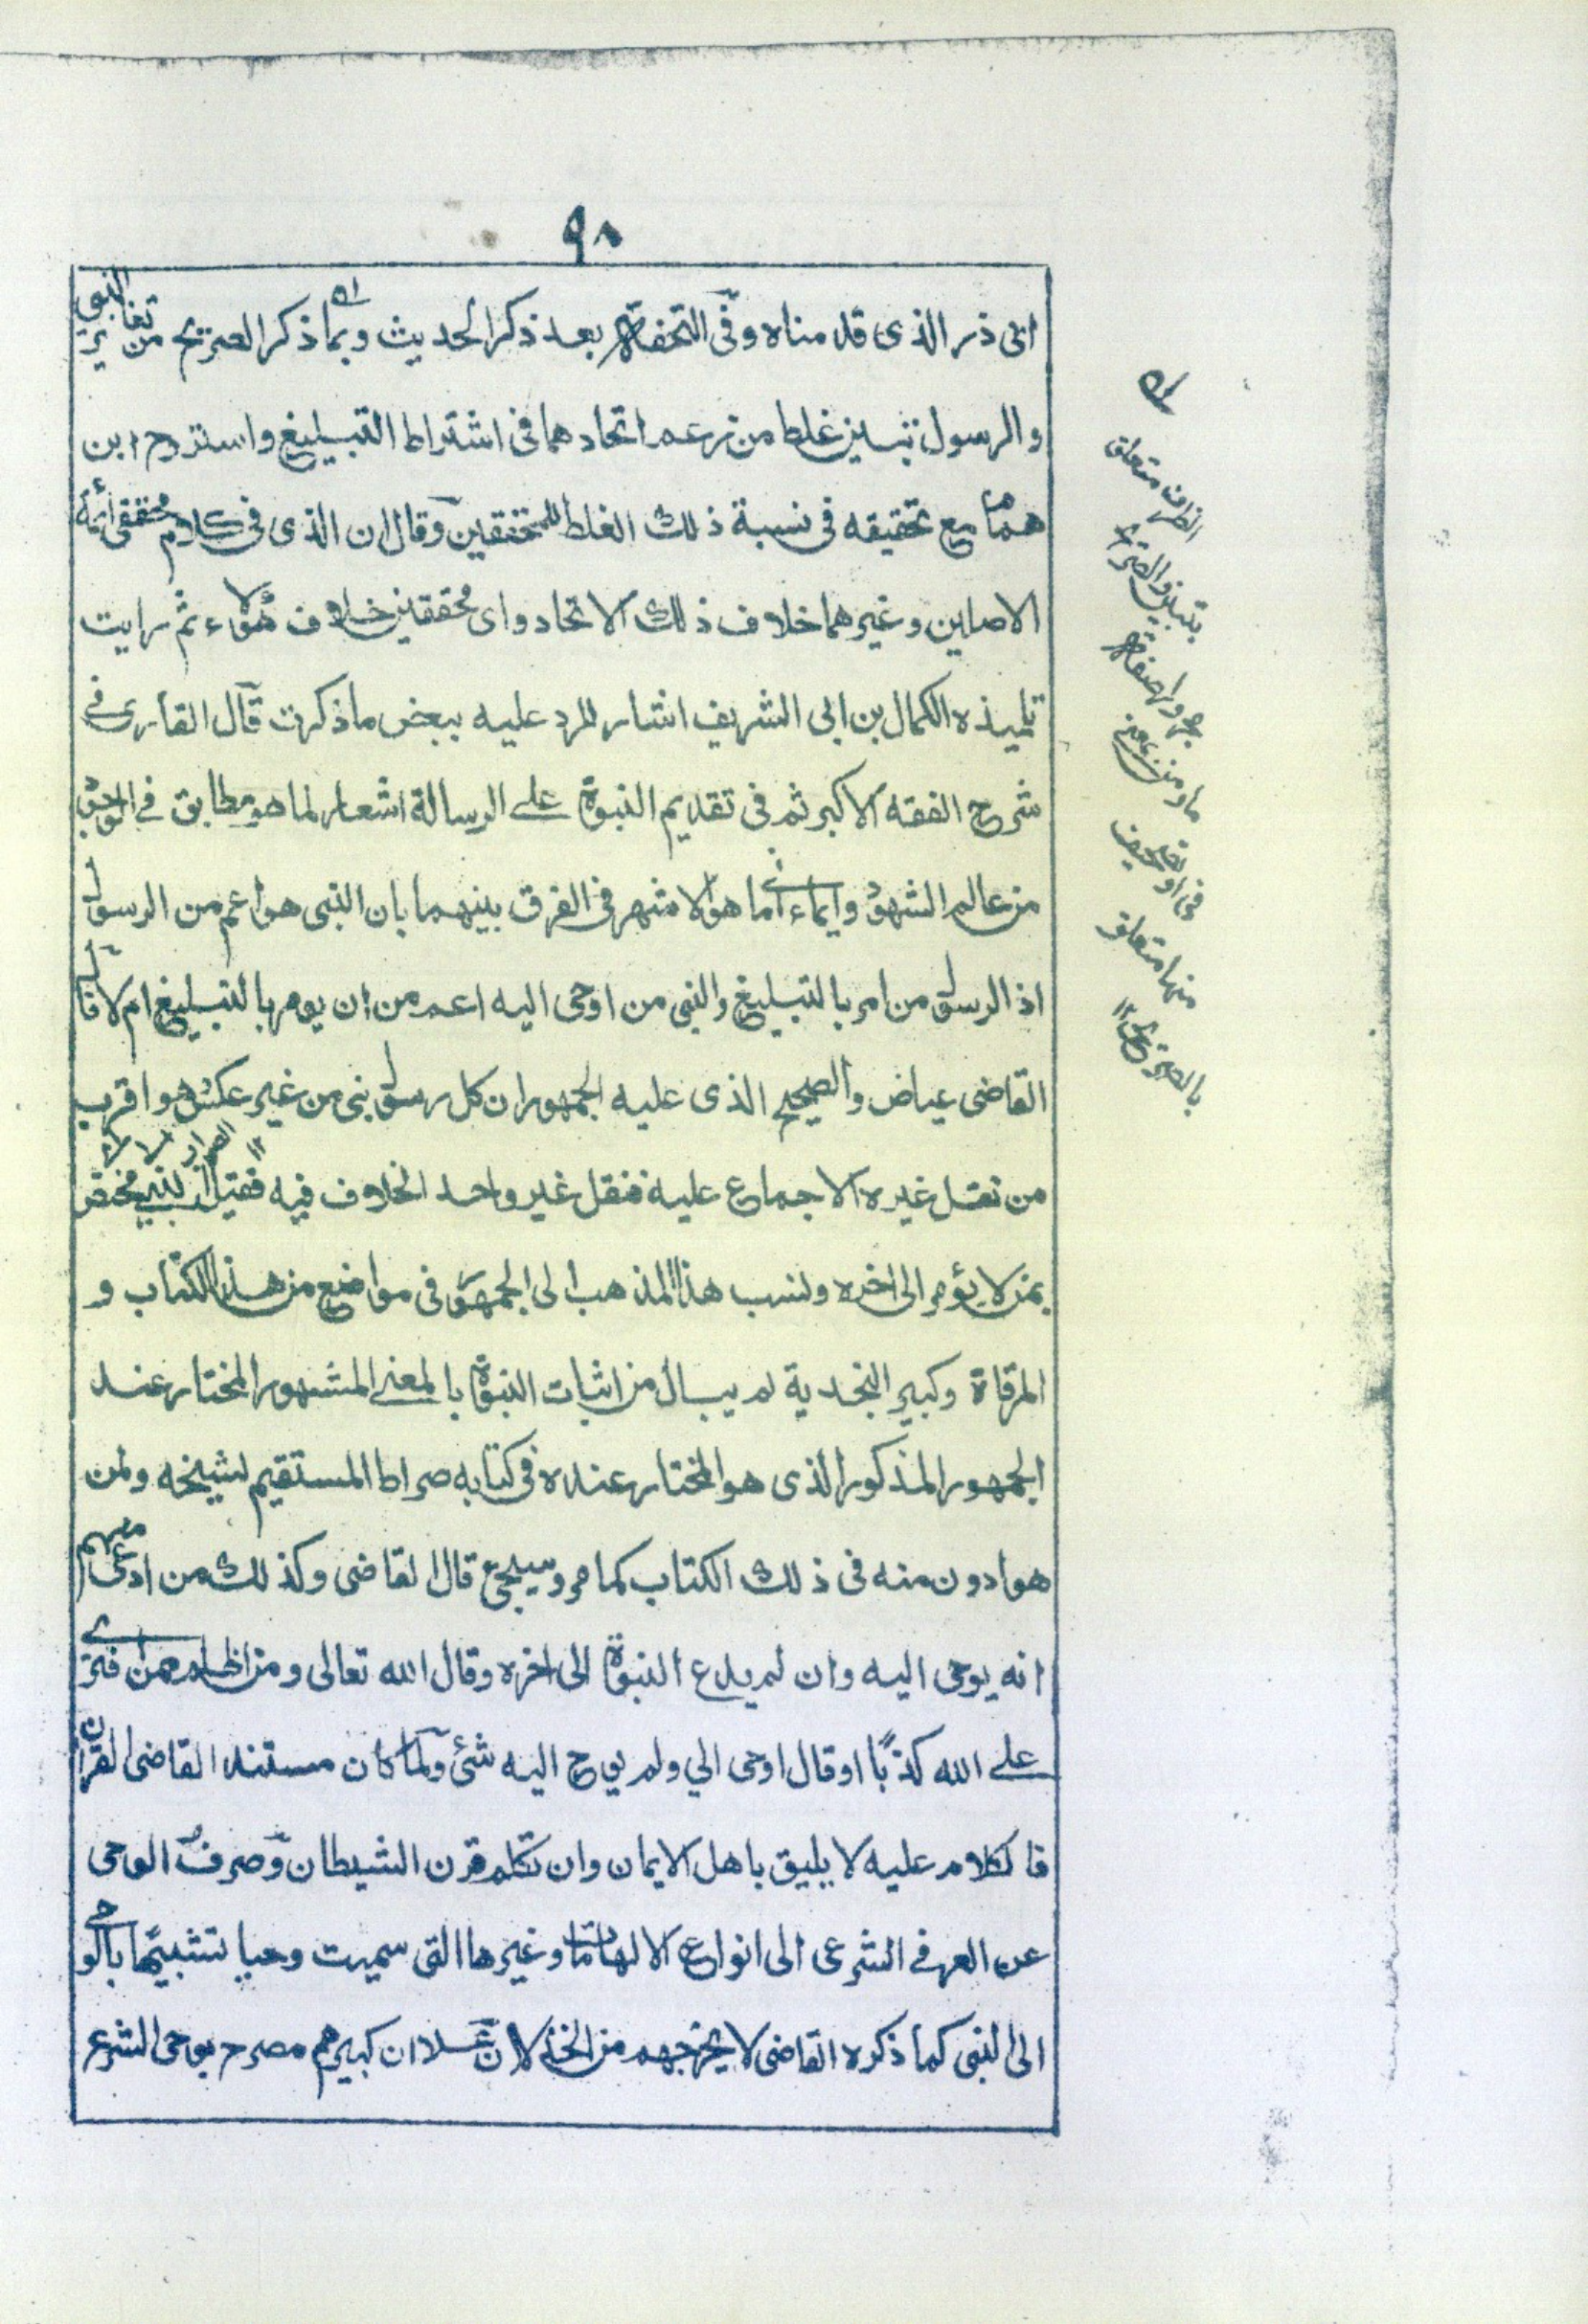 ٩٨
ابى ذر الذى قدمناه وفى التحفة بعد ذكر الحديث وبما ذكر الصريح من تغاير النبى
والرسول تبين غلط من زعم اتحادهما فى اشتراط التبليغ واستروح ابن
همام مع تحقيقه فى نسبة ذلك الغلط للمحققين وقال ان الذى فى كلام محققى ائمة
الاصلين وغيرهما خلاف ذلك الاتحاد واى محققين خلاف هؤلاء ثم رايت
تلميذه الكمال بن ابى الشريف اشار للرد عليه ببعض ما ذكرت قال القارى فى
شرح الفقه الاكبر ثم فى تقديم النبوة على الرسالة اشعار لما هو مطابق فى الوجود
من عالم الشهود وايماء الى ما هو الاشهر فى الفرق بينهما بان النبى هو اعم من الرسول
اذ الرسول من امر بالتبليغ والنبى من اوحى اليه اعم من ان يومر بالتبليغ ام لا قال
القاضى عياض والصحيح الذى عليه الجمهور ان كل رسول نبى من غير عكس هو اقرب
من نقل غيره الاجماع عليه فنقل غير واحد الخلاف فيه فقيل النبى مختص
بمن لا يؤمر الى اخره ونسب هذا المذهب الى الجمهور فى مواضع من هذا الكتاب و
المرقاة وكبير النجدية لم يبال من اثبات النبوة بالمعنى المشهور المختار عند
الجمهور المذكور الذى هو المختار عنده فى كتابه صراط المستقيم لشيخه ولمن
هو ادون منه فى ذلك الكتاب كما مر وسيجئ قال القاضى وكذلك من ادعى منهم
انه يوحى اليه وان لم يدع النبوة الى اخره وقال الله تعالى ومن اظلم ممن افترى
على الله كذبًا او قال اوحى الي ولم يوح اليه شئ ولما كان مستند القاضى القران
فالكلام عليه لا يليق باهل الايمان وان تكلم قرن الشيطان وصرف الوحى
عن العرف الشرعى الى انواع الالهامات وغيرها التى سميت وحيا تشبيها بالوحى
الى النبى كما ذكره القاضى لا يخرجهم من الخذلان على ان كبيرهم مصرح بوحى الشرع
الظرف متعلق
بتبين والصريح
مجرور صفة
ما ومن بمعنى
فى
منها متعلق
بالصريح ١٢